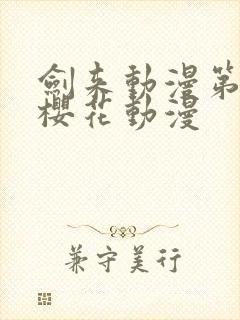 劍来動漫第
櫻花動漫
兼守美行